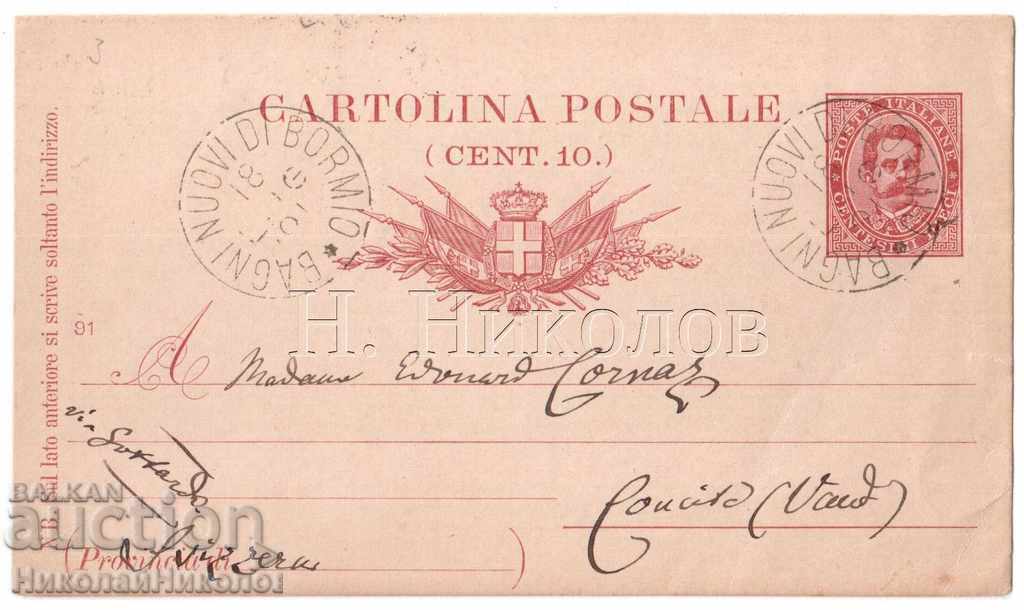 3
CARTOLINA POSTALE
(CENT. 10.)
BAGNI NUOVI DI BORMIO
18
POSTE ITALIANE
BAGNI NUOVI DI BORMIO
18
Н. Николов
N.B. Sul lato anteriore si scrive soltanto l'indirizzo.
91
A Madame Edouard Cornaz
via Gottardo
Concise (Vaud)
(Provincia di Svizzera
BALKAN
auction
НиколайНиколов